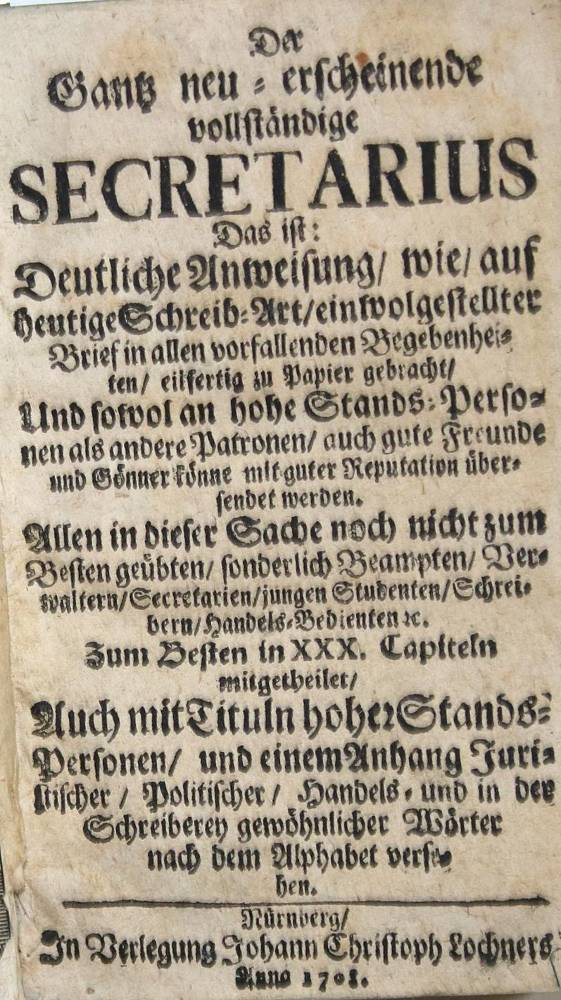 Der
Gantz neu-erscheinende
vollständige
SECRETARIUS
Das ist:
Deutliche Anweisung/ wie/ auf
heutige Schreib-Art/ ein wolgestellter
Brief in allen vorfallenden Begebenhei-
ten/ eilfertig zu Papier gebracht/
Und sowol an hohe Stands-Perso-
nen als andere Patronen/ auch gute Freunde
und Gönner könne mit guter Reputation über-
sendet werden.
Allen in dieser Sache noch nicht zum
Besten geübten/ sonderlich Beampten/ Ver-
waltern/ Secretarien/ jungen Studenten/ Schrei-
bern/ Handels-Bedienten ꝛc.
Zum Besten in XXX. Capiteln
mitgetheilet/
Auch mit Tituln hoher Stands-
Personen/ und einem Anhang Juri-
stischer / Politischer / Handels- und in der
Schreiberey gewöhnlicher Wörter
nach dem Alphabet verse-
hen.
Nürnberg/
In Verlegung Johann Christoph Lochners
Anno 1708.